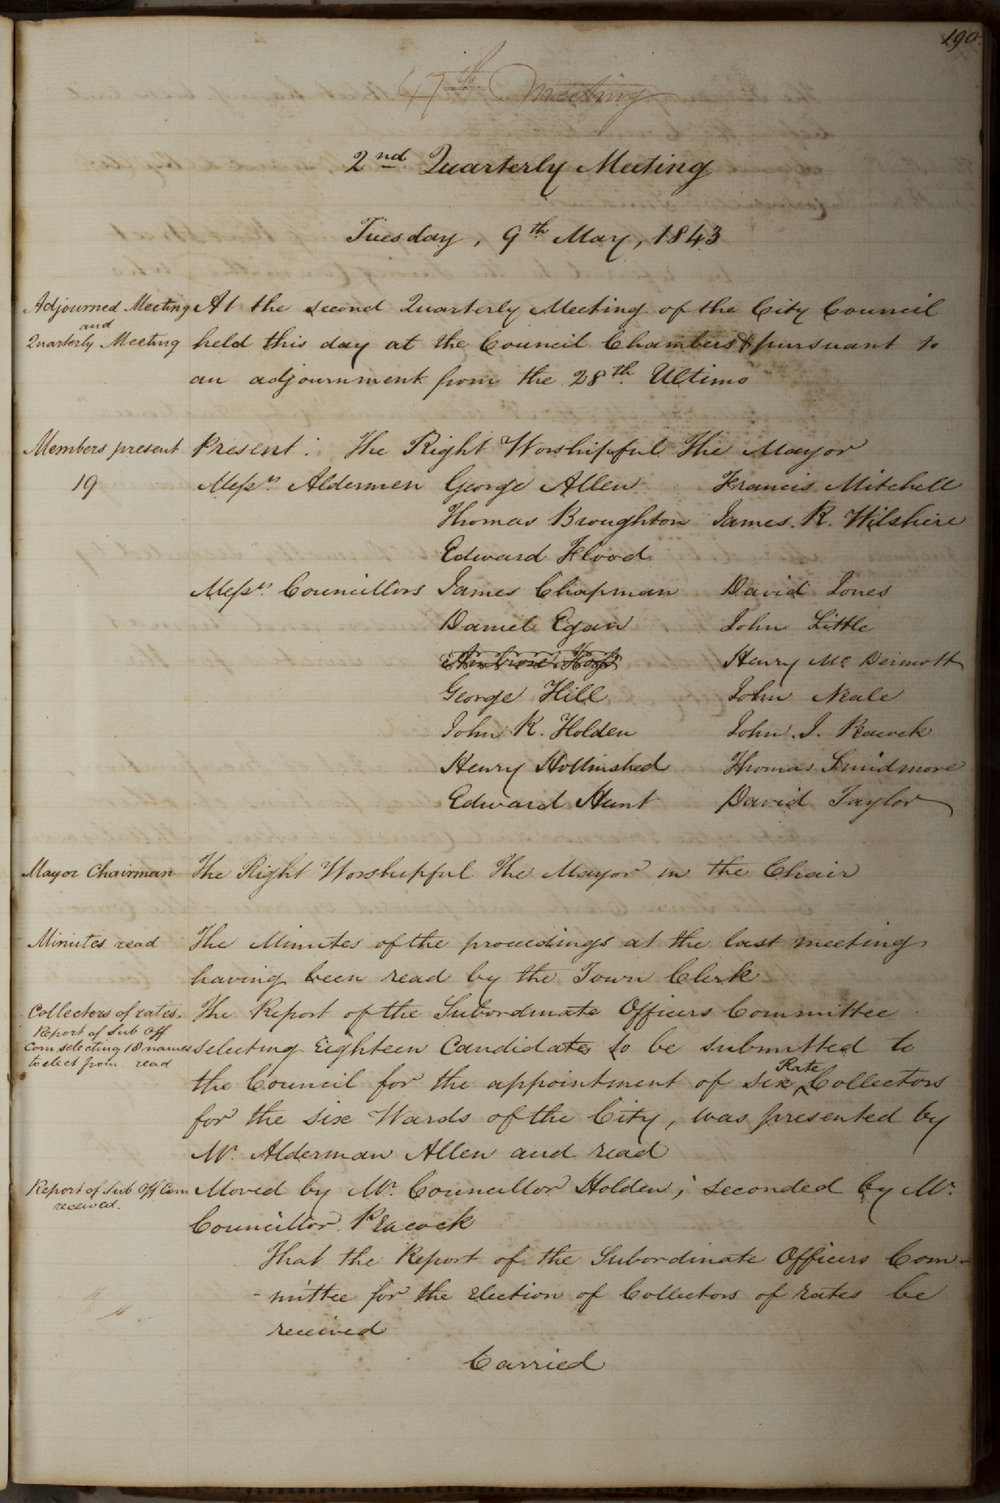 190
17th Meeting
2nd Quarterly Meeting
Tuesday, 9th May, 1843
Adjourned Meeting and Quarterly Meeting
At the second Quarterly Meeting of the City Council
held this day at the Council Chambers & pursuant to
an adjournment from the 28th Ultimo
Members present
19
Present: The Right Worshipful The Mayor
Messrs Aldermen George Allen Francis Mitchell
Thomas Broughton James. R. Wilshire
Edward Flood
Messrs Councillors James Chapman David Jones
Daniel Egan John Little
Henry McDermott
George Hill John Neale
John K. Holden John. J. Peacock
Henry Hollinshed Thomas Smidmore
Edward Hunt David Taylor
Mayor Chairman
The Right Worshipful The Mayor in the Chair
Minutes read
The Minutes of the proceedings at the last meeting
having been read by the Town Clerk
Collectors of rates.
Report of Sub Off
Com selecting 18 names
to elect from read
The Report of the Subordinate Officers Committee
selecting Eighteen Candidates to be submitted to
the Council for the appointment of six Rate Collectors
for the six Wards of the City, was presented by
Mr. Alderman Allen and read
Report of Sub Off Com
received.
Moved by Mr. Councillor Holden; seconded by Mr.
Councillor Peacock
That the Report of the Subordinate Officers Com-
-mittee for the election of Collectors of rates be
received
Carried